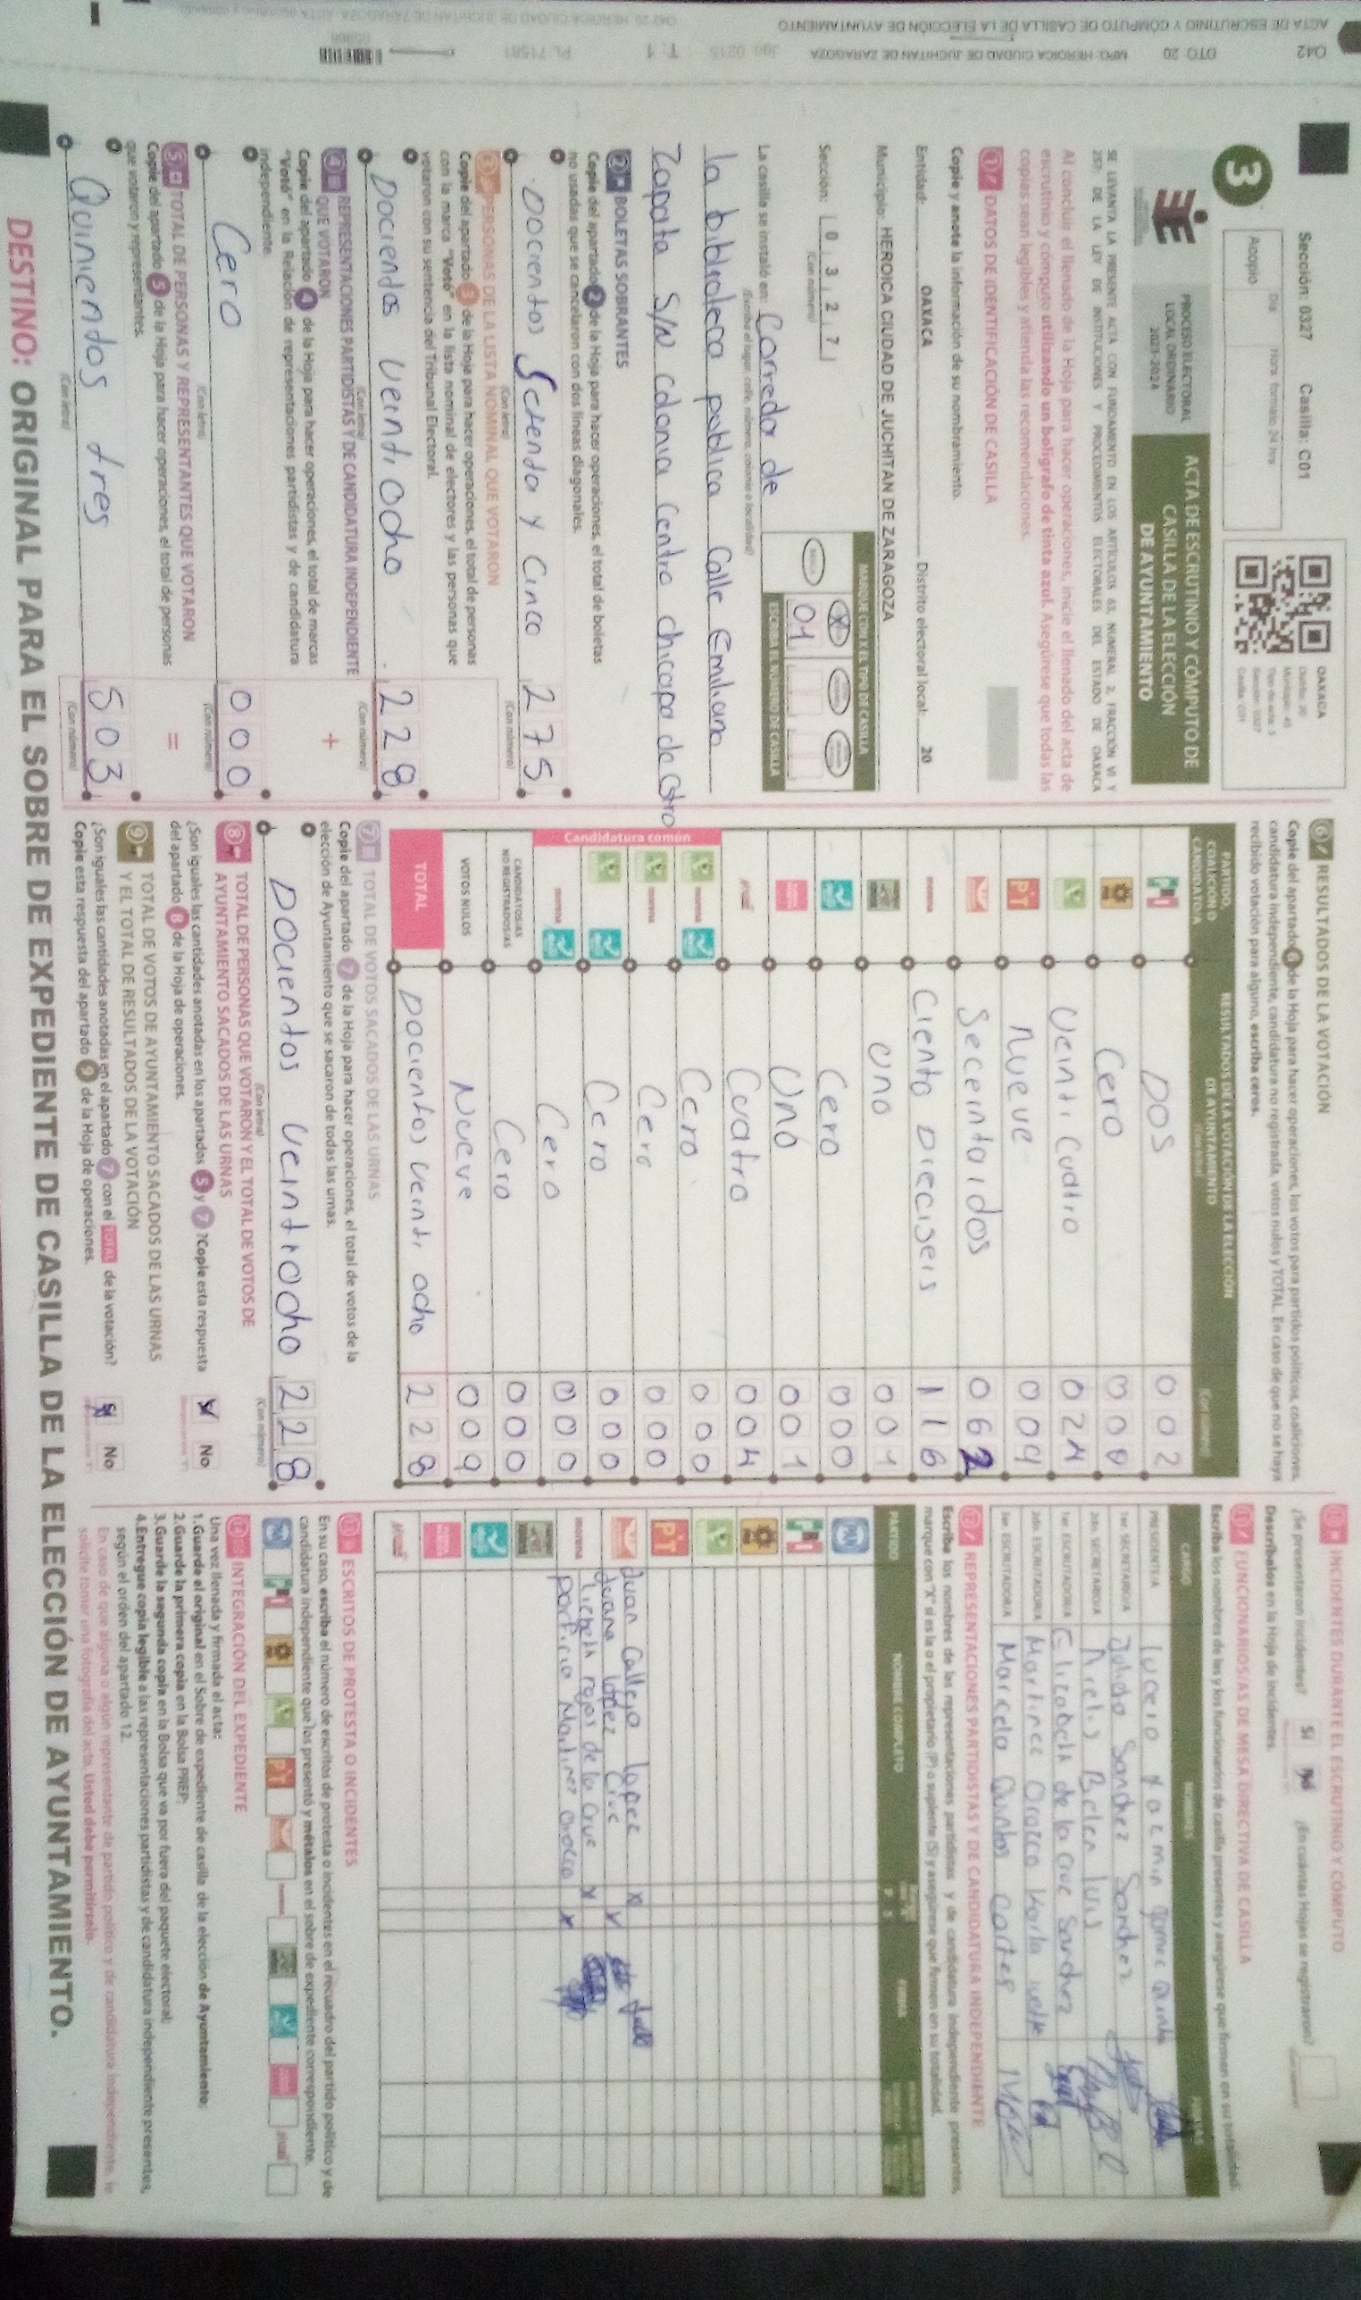 Sección: 0327 Casilla: C01
3
Acopio
Día Hora formato 24 hrs
OAXACA
PROCESO ELECTORAL
LOCAL ORDINARIO
2023-2024
ACTA DE ESCRUTINIO Y CÓMPUTO DE
CASILLA DE LA ELECCIÓN
DE AYUNTAMIENTO
SE LEVANTA LA PRESENTE ACTA CON FUNDAMENTO EN LOS ARTÍCULOS 63, NUMERAL 2, FRACCIÓN VI Y
DE LA LEY DE INSTITUCIONES Y PROCEDIMIENTOS ELECTORALES DEL ESTADO DE OAXACA
Al concluir el llenado de la Hoja para hacer operaciones, inicie el llenado del acta de
escrutinio y cómputo utilizando un bolígrafo de tinta azul. Asegúrese que todas las
copias sean legibles y atienda las recomendaciones.
1 DATOS DE IDENTIFICACIÓN DE CASILLA
Copie y anote la información de su nombramiento.
Entidad: OAXACA Distrito electoral local: 20
Municipio: HEROICA CIUDAD DE JUCHITAN DE ZARAGOZA
Sección: 0 3 2 7
(Con número)
MARQUE CON X EL TIPO DE CASILLA
ESCRIBA EL NÚMERO DE CASILLA
01
La casilla se instaló en: Corredor de
(Escriba el lugar, calle, número, colonia o localidad)
la biblioteca publica Calle Emiliano
Zapata S/N colonia Centro chicapa de Cstro
2 BOLETAS SOBRANTES
Copie del apartado 2 de la Hoja para hacer operaciones, el total de boletas
no usadas que se cancelaron con dos líneas diagonales.
Docientos Setenta y Cinco 275
(Con letra) (Con número)
3 PERSONAS DE LA LISTA NOMINAL QUE VOTARON
Copie del apartado 3 de la Hoja para hacer operaciones, el total de personas
con la marca "Votó" en la lista nominal de electores y las personas que
votaron con su sentencia del Tribunal Electoral.
Docientos Veinti Ocho 228
(Con letra) (Con número)
4 REPRESENTACIONES PARTIDISTAS Y DE CANDIDATURA INDEPENDIENTE
QUE VOTARON +
Copie del apartado 4 de la Hoja para hacer operaciones, el total de marcas
"Votó" en la Relación de representaciones partidistas y de candidatura
independiente.
Cero 000
(Con letra) (Con número)
5 TOTAL DE PERSONAS Y REPRESENTANTES QUE VOTARON =
Copie del apartado 5 de la Hoja para hacer operaciones, el total de personas
que votaron y representantes.
Quinientos tres 503
(Con letra) (Con número)
6 RESULTADOS DE LA VOTACIÓN
Copie del apartado 6 de la Hoja para hacer operaciones, los votos para partidos políticos, coaliciones,
candidatura independiente, candidatura no registrada, votos nulos y TOTAL. En caso de que no se haya
recibido votación para alguno, escriba ceros.
PARTIDO,
COALICIÓN O
CANDIDATO/A
RESULTADOS DE LA VOTACIÓN DE LA ELECCIÓN
DE AYUNTAMIENTO
Dos 002
PRD Cero 000
Veinti Cuatro 024
PT Nueve 009
Secentaidos 062
morena Ciento Dieciseis 116
Uno 001
Cero 000
Uno 001
Cuatro 004
Candidatura común
morena Cero 000
morena Cero 000
Cero 000
morena Cero 000
CANDIDATOS/AS
NO REGISTRADOS/AS Cero 000
VOTOS NULOS Nueve 009
TOTAL Docientos veinti ocho 228
7 TOTAL DE VOTOS SACADOS DE LAS URNAS
Copie del apartado 7 de la Hoja para hacer operaciones, el total de votos de la
elección de Ayuntamiento que se sacaron de todas las urnas.
Docientos Veintiocho 228
(Con letra) (Con número)
8 TOTAL DE PERSONAS QUE VOTARON Y EL TOTAL DE VOTOS DE
AYUNTAMIENTO SACADOS DE LAS URNAS
¿Son iguales las cantidades anotadas en los apartados 5 y 7 ? Copie esta respuesta
del apartado 8 de la Hoja de operaciones.
Sí No
9 TOTAL DE VOTOS DE AYUNTAMIENTO SACADOS DE LAS URNAS
Y EL TOTAL DE RESULTADOS DE LA VOTACIÓN
¿Son iguales las cantidades anotadas en el apartado 7 con el TOTAL de la votación?
Copie esta respuesta del apartado 9 de la Hoja de operaciones.
Sí No
INCIDENTES DURANTE EL ESCRUTINIO Y CÓMPUTO
¿Se presentaron incidentes? Sí No ¿En cuántas Hojas se registraron?
Descríbalos en la Hoja de incidentes.
FUNCIONARIOS/AS DE MESA DIRECTIVA DE CASILLA
Escriba los nombres de las y los funcionarios de casilla presentes y asegúrese que firmen en su totalidad.
CARGO NOMBRES FIRMAS
PRESIDENTE/A lucero Yacmin Gomec
1er. SECRETARIO/A Sanchez Sanchez
2do. SECRETARIO/A Arelis Belen luis
1er. ESCRUTADOR/A Elizabeth de la Crue Sanchez
2do. ESCRUTADOR/A Martinez Orozco Karla
3er. ESCRUTADOR/A Marcela Quintos Cortes
12 REPRESENTACIONES PARTIDISTAS Y DE CANDIDATURA INDEPENDIENTE
Escriba los nombres de las representaciones partidistas y de candidatura independiente presentes,
marque con "X" si es la o el propietario (P) o suplente (S) y asegúrese que firmen en su totalidad.
PARTIDO NOMBRE COMPLETO P S FIRMA
PAN
PRD
PT
Juan Callejo lopez
Juana lopez Crue
Licbeth rojas de la Crue
morena porfirio Martinez Orozco
ESCRITOS DE PROTESTA O INCIDENTES
En su caso, escriba el número de escritos de protesta o incidentes en el recuadro del partido político y de
candidatura independiente que los presentó y métalos en el sobre de expediente correspondiente.
INTEGRACIÓN DEL EXPEDIENTE
Una vez llenada y firmada el acta:
1.Guarde el original en el Sobre de expediente de casilla de la elección de Ayuntamiento;
2.Guarde la primera copia en la Bolsa PREP;
3.Guarde la segunda copia en la Bolsa que va por fuera del paquete electoral;
4.Entregue copia legible a las representaciones partidistas y de candidatura independiente presentes,
según el orden del apartado 12.
En caso de que alguna o algún representante de partido político y de candidatura independiente, le
solicite tomar una fotografía del acta, Usted debe permitírselo.
DESTINO: ORIGINAL PARA EL SOBRE DE EXPEDIENTE DE CASILLA DE LA ELECCIÓN DE AYUNTAMIENTO.
ACTA DE ESCRUTINIO Y CÓMPUTO DE CASILLA DE LA ELECCIÓN DE AYUNTAMIENTO
042 DTO: 20 MPO: HEROICA CIUDAD DE JUCHITAN DE ZARAGOZA